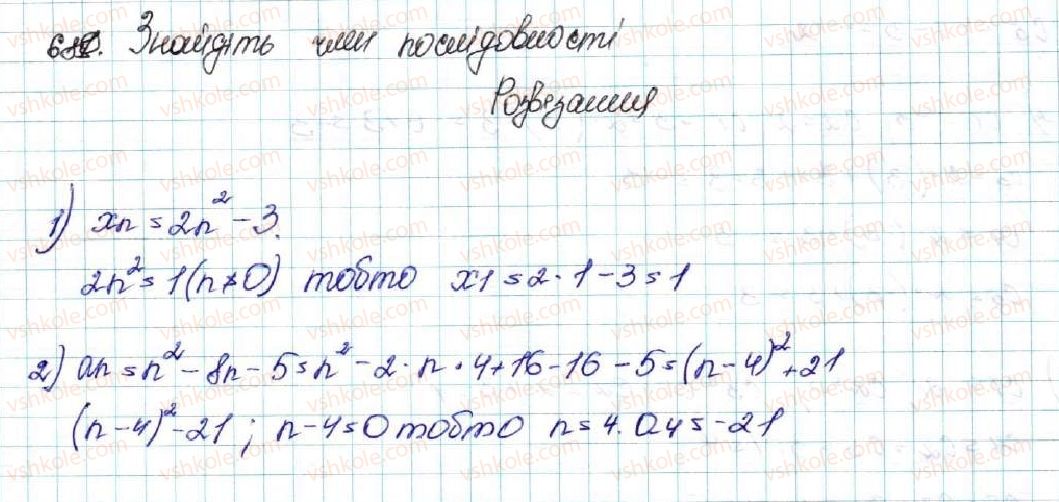 Знайдіть член послідовності
Розвязання
1) xn = 2n² - 3.
2n² = 1 (n ≠ 0) тобто x1 = 2 · 1 - 3 = 1
2) an = n² - 8n - 5 = n² - 2 · n · 4 + 16 - 16 - 5 = (n - 4)² + 21
(n - 4)² - 21 ; n - 4 = 0 тобто n = 4. a4 = -21